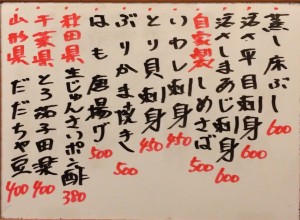 蒸し床ぶし 600
活さ平目刺身 600
活さしまあじ刺身 600
自家製しめさば 500
いわし刺身 450
とり貝刺身 450
ぶりかま焼き 500
はも唐揚げ 500
秋田県 生じゅんさいポン酢 380
千葉県 とろ茄子田楽 400
山形県 だだちゃ豆 400